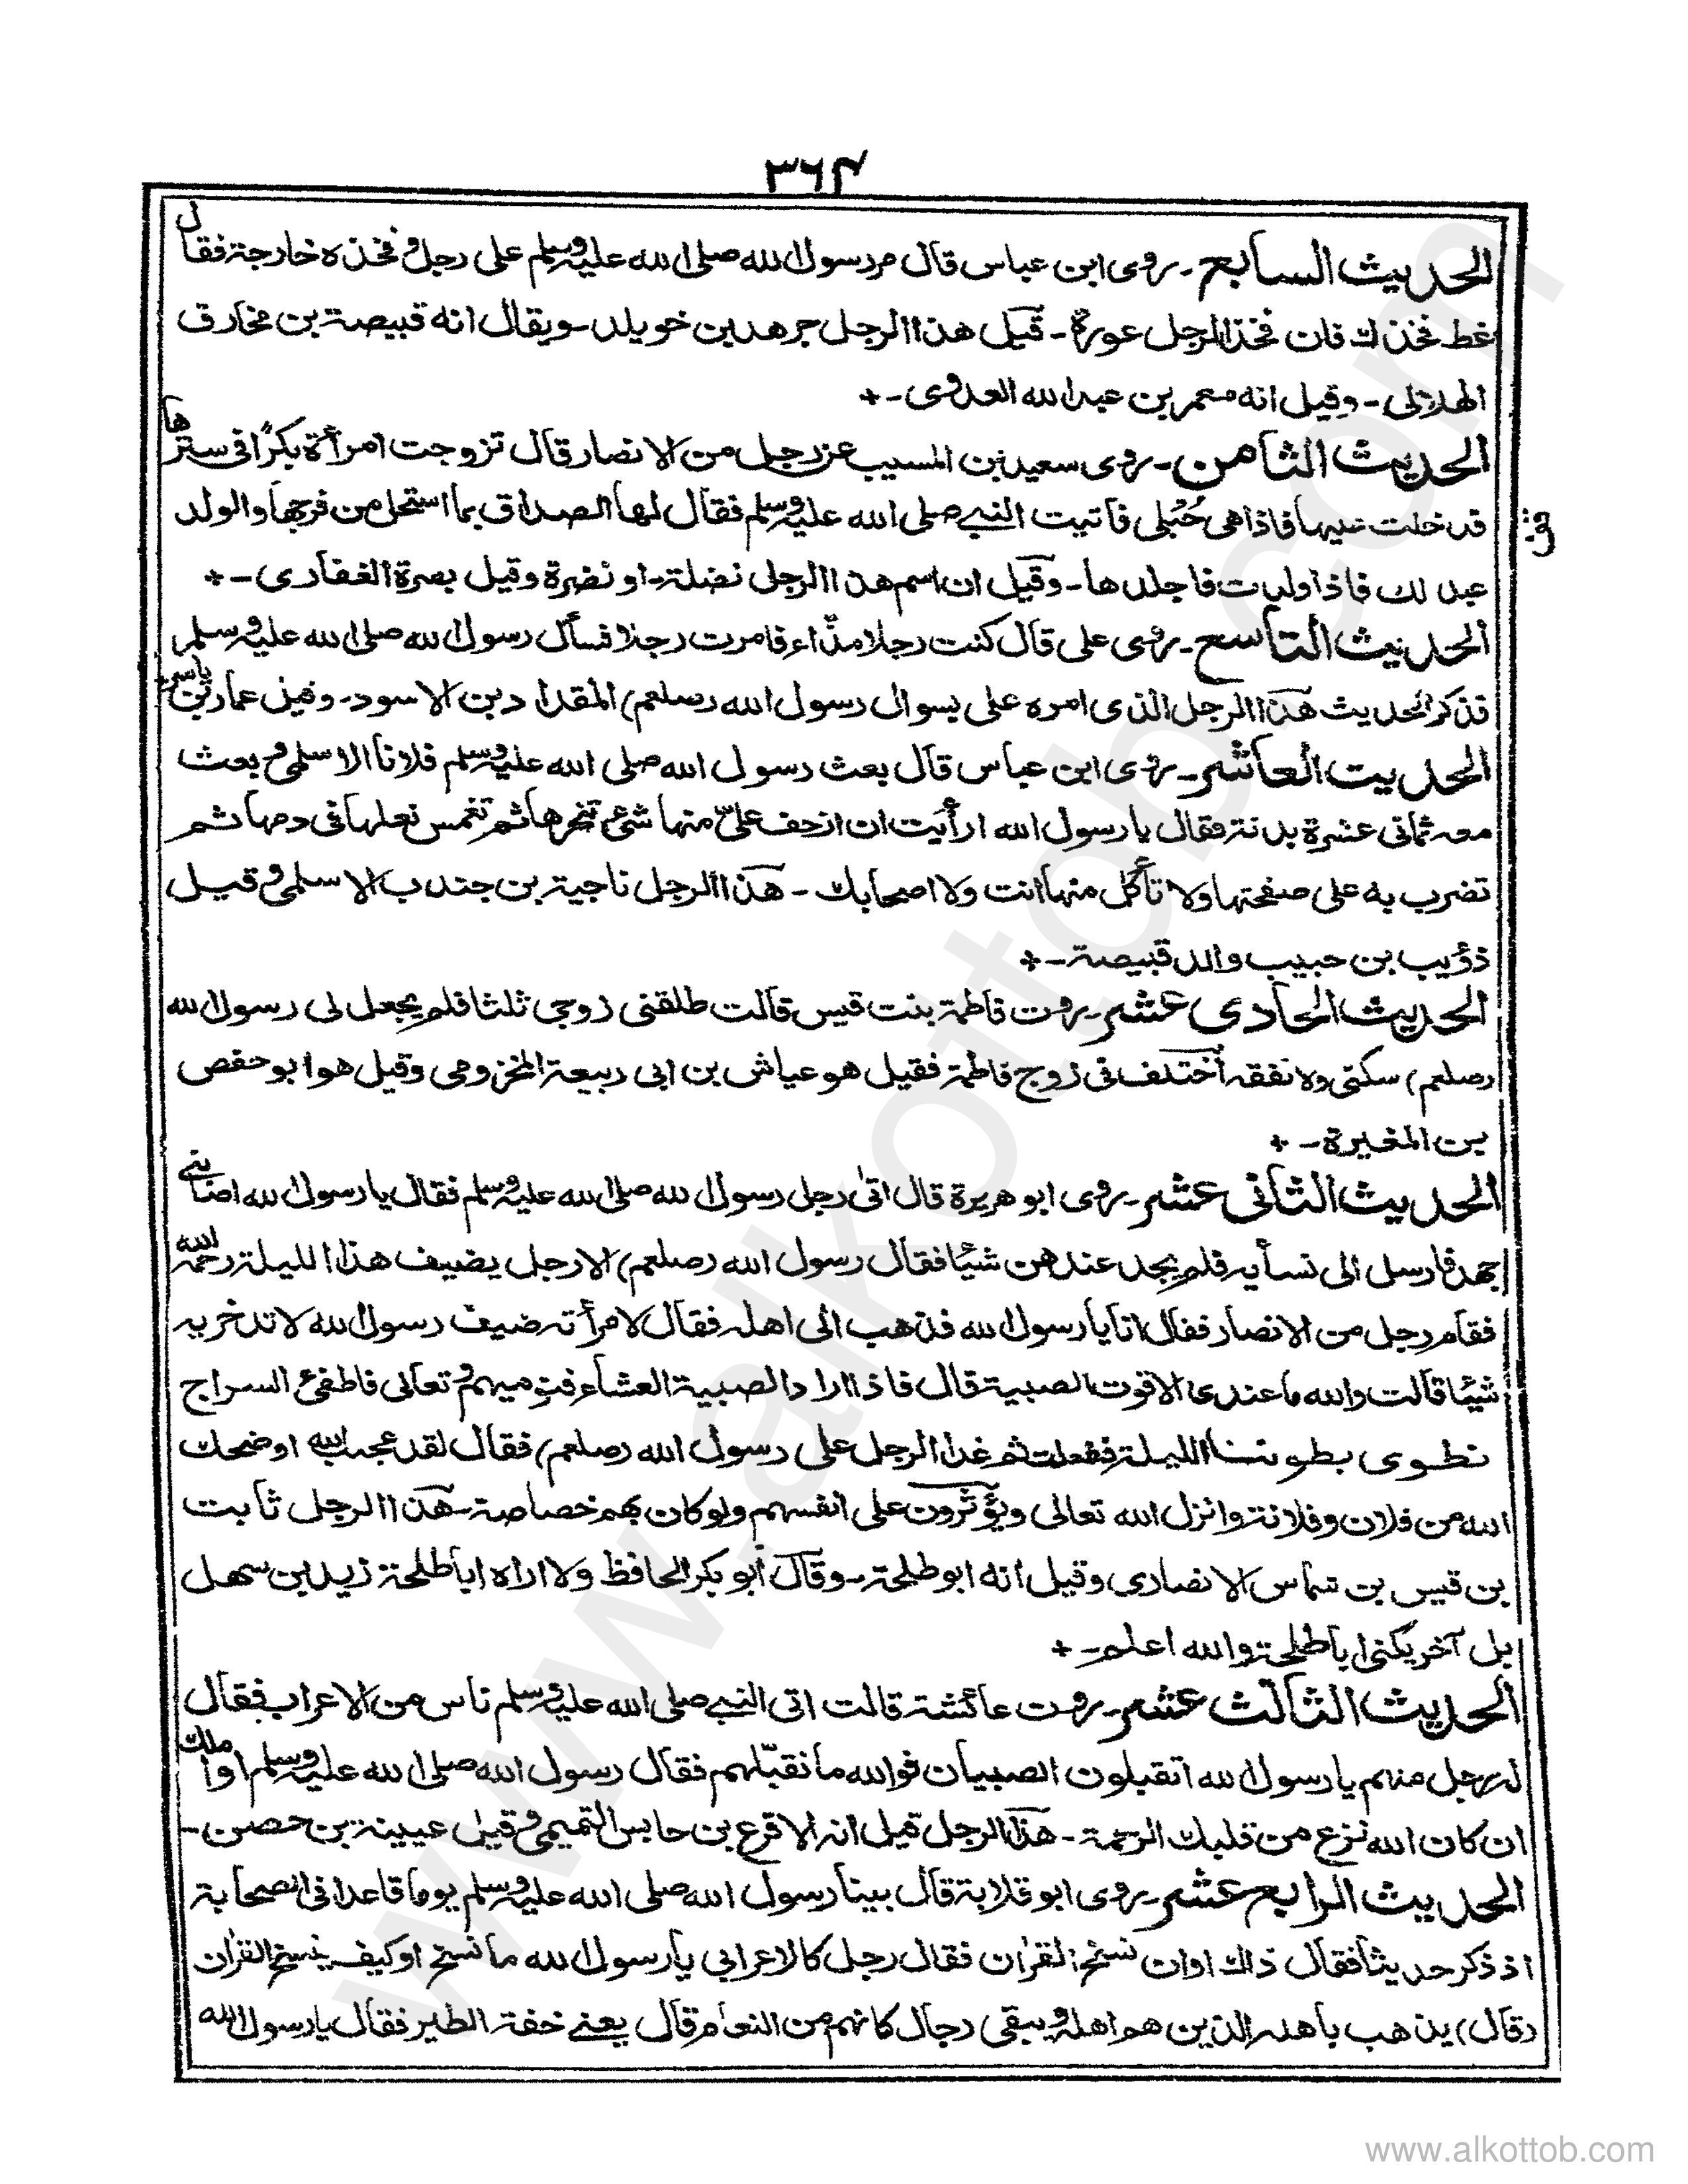 ٣٦٤
الحديث السابع ـ روى ابن عباس قال مر رسول الله صلى الله عليه وسلم على رجل وفخذه خارجة فقال
غط فخذك فان فخذ الرجل عورة ـ قيل هذا الرجل جرهد بن خويلد ـ ويقال انه قبيصة بن مخارق
الهلالى ـ وقيل انه معمر بن عبد الله العدوى ـ +
الحديث الثامن ـ روى سعيد بن المسيب عن رجل من الانصار قال تزوجت امرأة بكرًا فى سترها
قد خلت عليها فاذا هى حُبْلى فاتيت النبى صلى الله عليه وسلم فقال لها الصداق بما استحل من فرجها والولد
عبد لك فاذا ولدت فاجلدها ـ وقيل ان اسم هذا الرجل نضلة ـ او نضرة وقيل بصرة الغفارى ـ +
الحديث التاسع ـ روى على قال كنت رجلا مذّاء فامرت رجلا فسأل رسول الله صلى الله عليه وسلم
فذكر الحديث هذا الرجل الذى امره على بسوال رسول الله (صلعم) المقداد بن الاسود ـ وقيل عمار بن ياسر
الحديث العاشر ـ روى ابن عباس قال بعث رسول الله صلى الله عليه وسلم فلانا الاسلمى وبعث
معه ثمانى عشرة بدنة فقال يا رسول الله ارأيت ان ازحف علىّ منها شئ تنحرها ثم تغمس نعلها فى دمها ثم
تضرب به على صفحتها ولا تأكل منها انت ولا اصحابك ـ هذا الرجل ناجية بن جندب الاسلمى وقيل
ذؤيب بن حبيب والد قبيصة ـ +
الحديث الحادى عشر ـ روت فاطمة بنت قيس قالت طلقنى زوجى ثلثا فلم يجعل لى رسول الله
(صلعم) سكنى ولا نفقه اختلف فى زوج فاطمة فقيل هو عياش بن ابى ربيعة المخزومى وقيل هو ابو حفص
بن المغيرة ـ +
الحديث الثانى عشر ـ روى ابو هريرة قال اتى رجل رسول الله صلى الله عليه وسلم فقال يا رسول الله اصابنى
جهد فارسل الى نسأيه فلم يجد عندهن شيئا فقال رسول الله (صلعم) الا رجل يضيف هذا الليلة رحمه الله
فقام رجل من الانصار فقال انا يا رسول الله فذهب الى اهله فقال لامرأته ضيف رسول الله لا تدخريه
شيئا قالت والله ما عندى الا قوت الصبية قال فاذا اراد الصبية العشاء فنوميهم وتعالى فاطفئ السراج
نطوى بطوننا الليلة ففعلت ثم غدا الرجل على رسول الله (صلعم) فقال لقد عجب الله او ضحك
الله من فلان وفلانة وانزل الله تعالى ويؤثرون على انفسهم ولو كان بهم خصاصة ـ هذا الرجل ثابت
بن قيس بن شماس الانصارى وقيل انه ابو طلحة ـ وقال أبو بكر الحافظ ولا اراه اباطلحة زيد بن سهل
بل آخر يكنى اباطلحة والله اعلم ـ +
الحديث الثالث عشر ـ روت عائشة قالت اتى النبى صلى الله عليه وسلم ناس من الاعراب فقال
له رجل منهم يا رسول الله اتقبلون الصبيان فوالله ما نقبّلهم فقال رسول الله صلى الله عليه وسلم اوأملك
ان كان الله نزع من قلبك الرحمة ـ هذا الرجل قيل انه الاقرع بن حابس التميمى وقيل عيينة بن حصن ـ
الحديث الرابع عشر ـ روى ابو قلابة قال بينا رسول الله صلى الله عليه وسلم يوما قاعدا فى الصحابة
اذ ذكر حديثا فقال ذلك اوان نسخ القران فقال رجل كالاعرابى يا رسول الله ما نسخ او كيف ينسخ القران
(قال) يذهب باهله الذين هم اهله ويبقى رجال كانهم من النعام قال يعنى خفة الطير فقال يا رسول الله
www.alkottob.com
www.alkottob.com